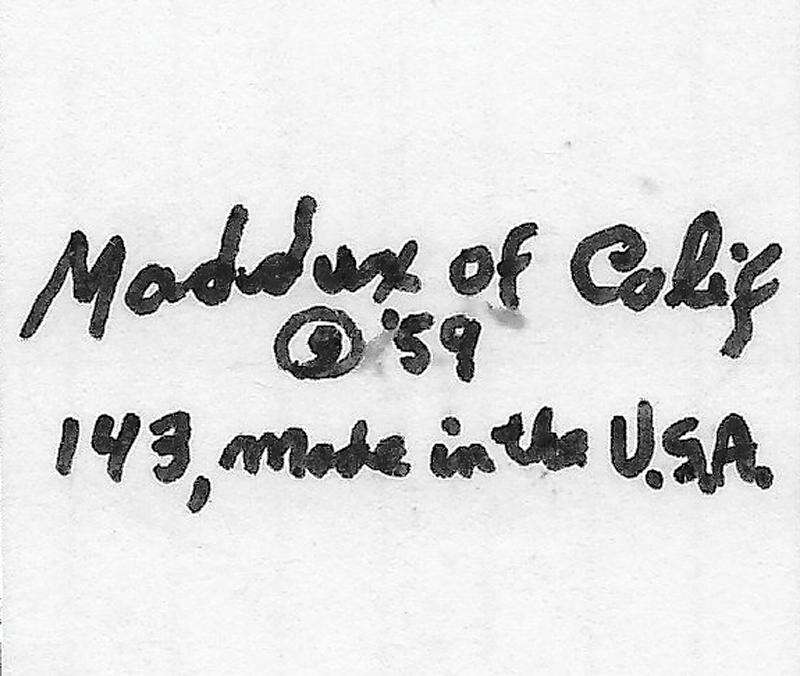 Maddux of Calif
© '59
143, made in the U.S.A.